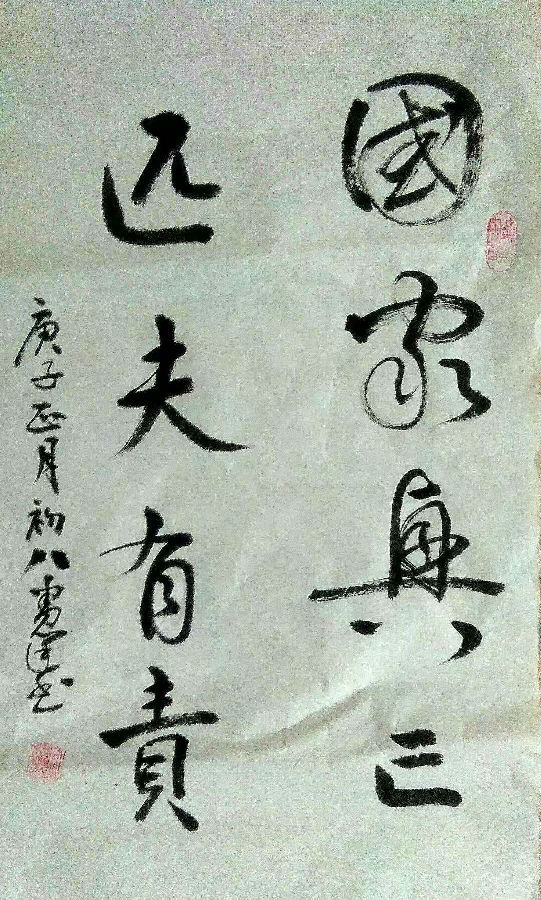 國家興亡
匹夫有責
庚子正月初八